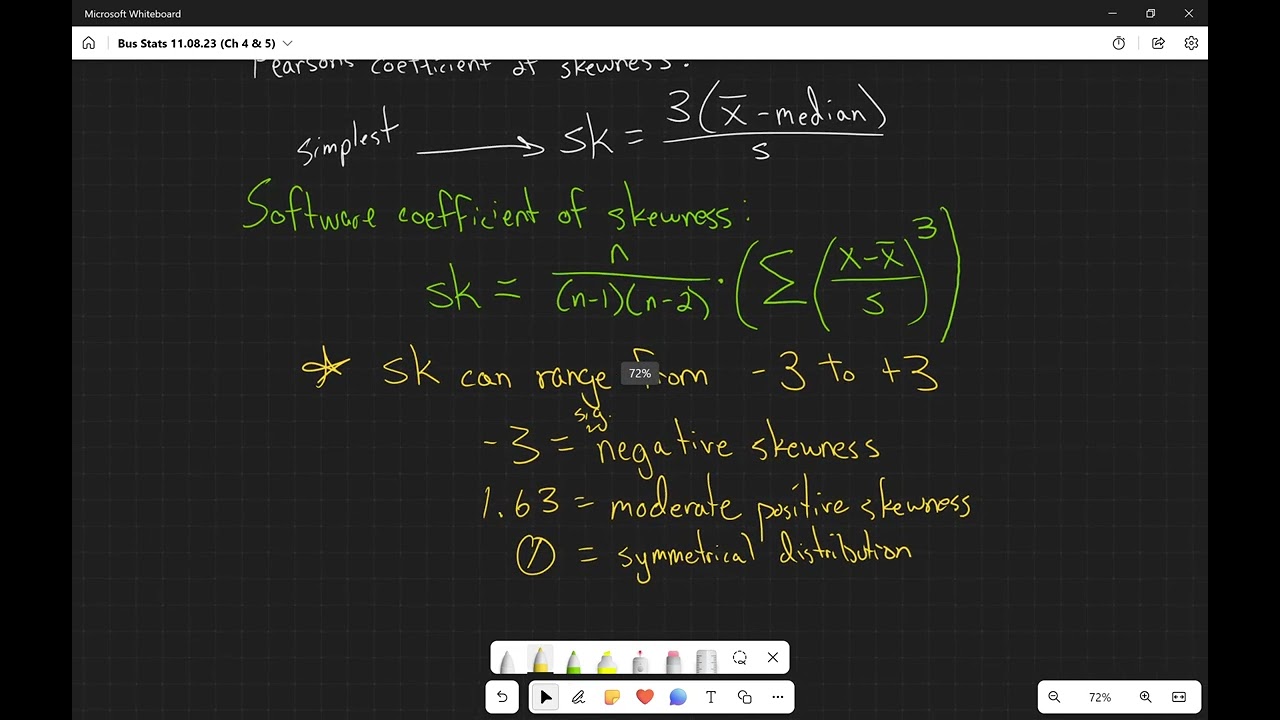 Microsoft Whiteboard
Bus Stats 11.08.23 (Ch 4 & 5)
Pearson's coefficient of skewness:
simplest → sk = 3(x̄ - median) / s
Software coefficient of skewness:
sk = n / (n-1)(n-2) · (Σ((x-x̄)/s)³)
* sk can range from -3 to +3
72%
sig.
-3 = negative skewness
1.63 = moderate positive skewness
0 = symmetrical distribution
T
72%